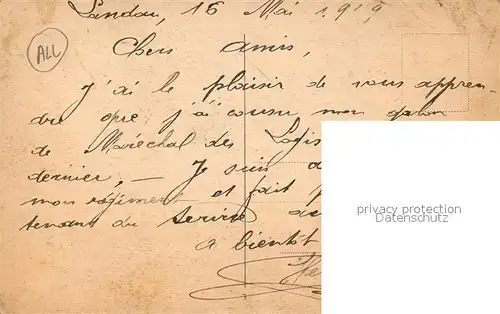 Landau, 16 Mai 1919
ALL
Chers amis,
J'ai le plaisir de vous appren-
dre que j'ai cousu mon galon
de Maréchal des Logis
dernier, — Je suis
mon régiment et fait
tenant du service
a bientôt
privacy protection